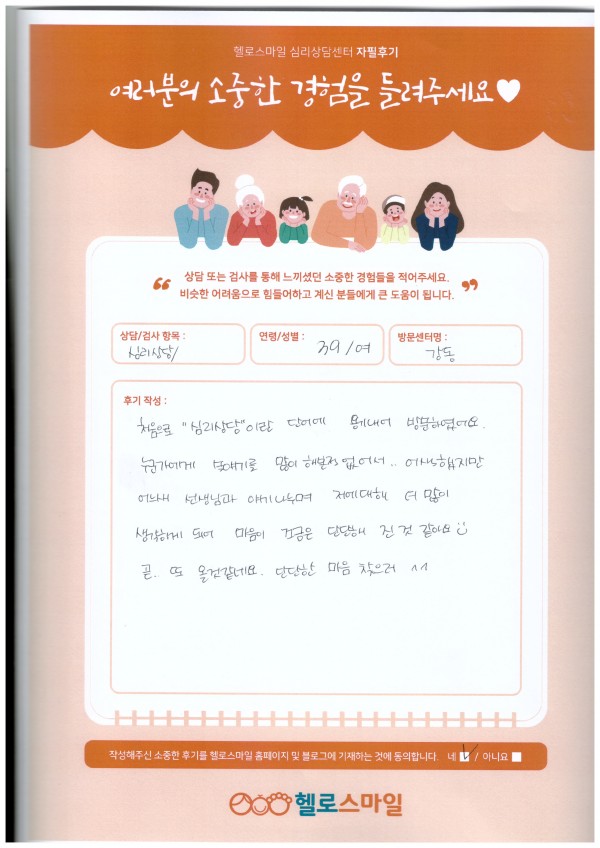 헬로스마일 심리상담센터 자필후기
여러분의 소중한 경험을 들려주세요♥
상담 또는 검사를 통해 느끼셨던 소중한 경험들을 적어주세요.
비슷한 어려움으로 힘들어하고 계신 분들에게 큰 도움이 됩니다.
상담/검사 항목 :
심리상담/
연령/성별 :
39/여
방문센터명 :
강동
후기 작성 :
처음으로 "심리상담"이란 단어에 용기내어 방문하였어요.
누군가에게 얘기를 많이 해본적 없어서.. 어색했지만
어느새 선생님과 얘기 나누며 저에대해 더 많이
생각하게 되어 마음이 조금은 단단해 진 것 같아요
곧. 또 올것같네요. 단단한 마음 찾으러 ^^
작성해주신 소중한 후기를 헬로스마일 홈페이지 및 블로그에 기재하는 것에 동의합니다. 네 / 아니요
헬로스마일